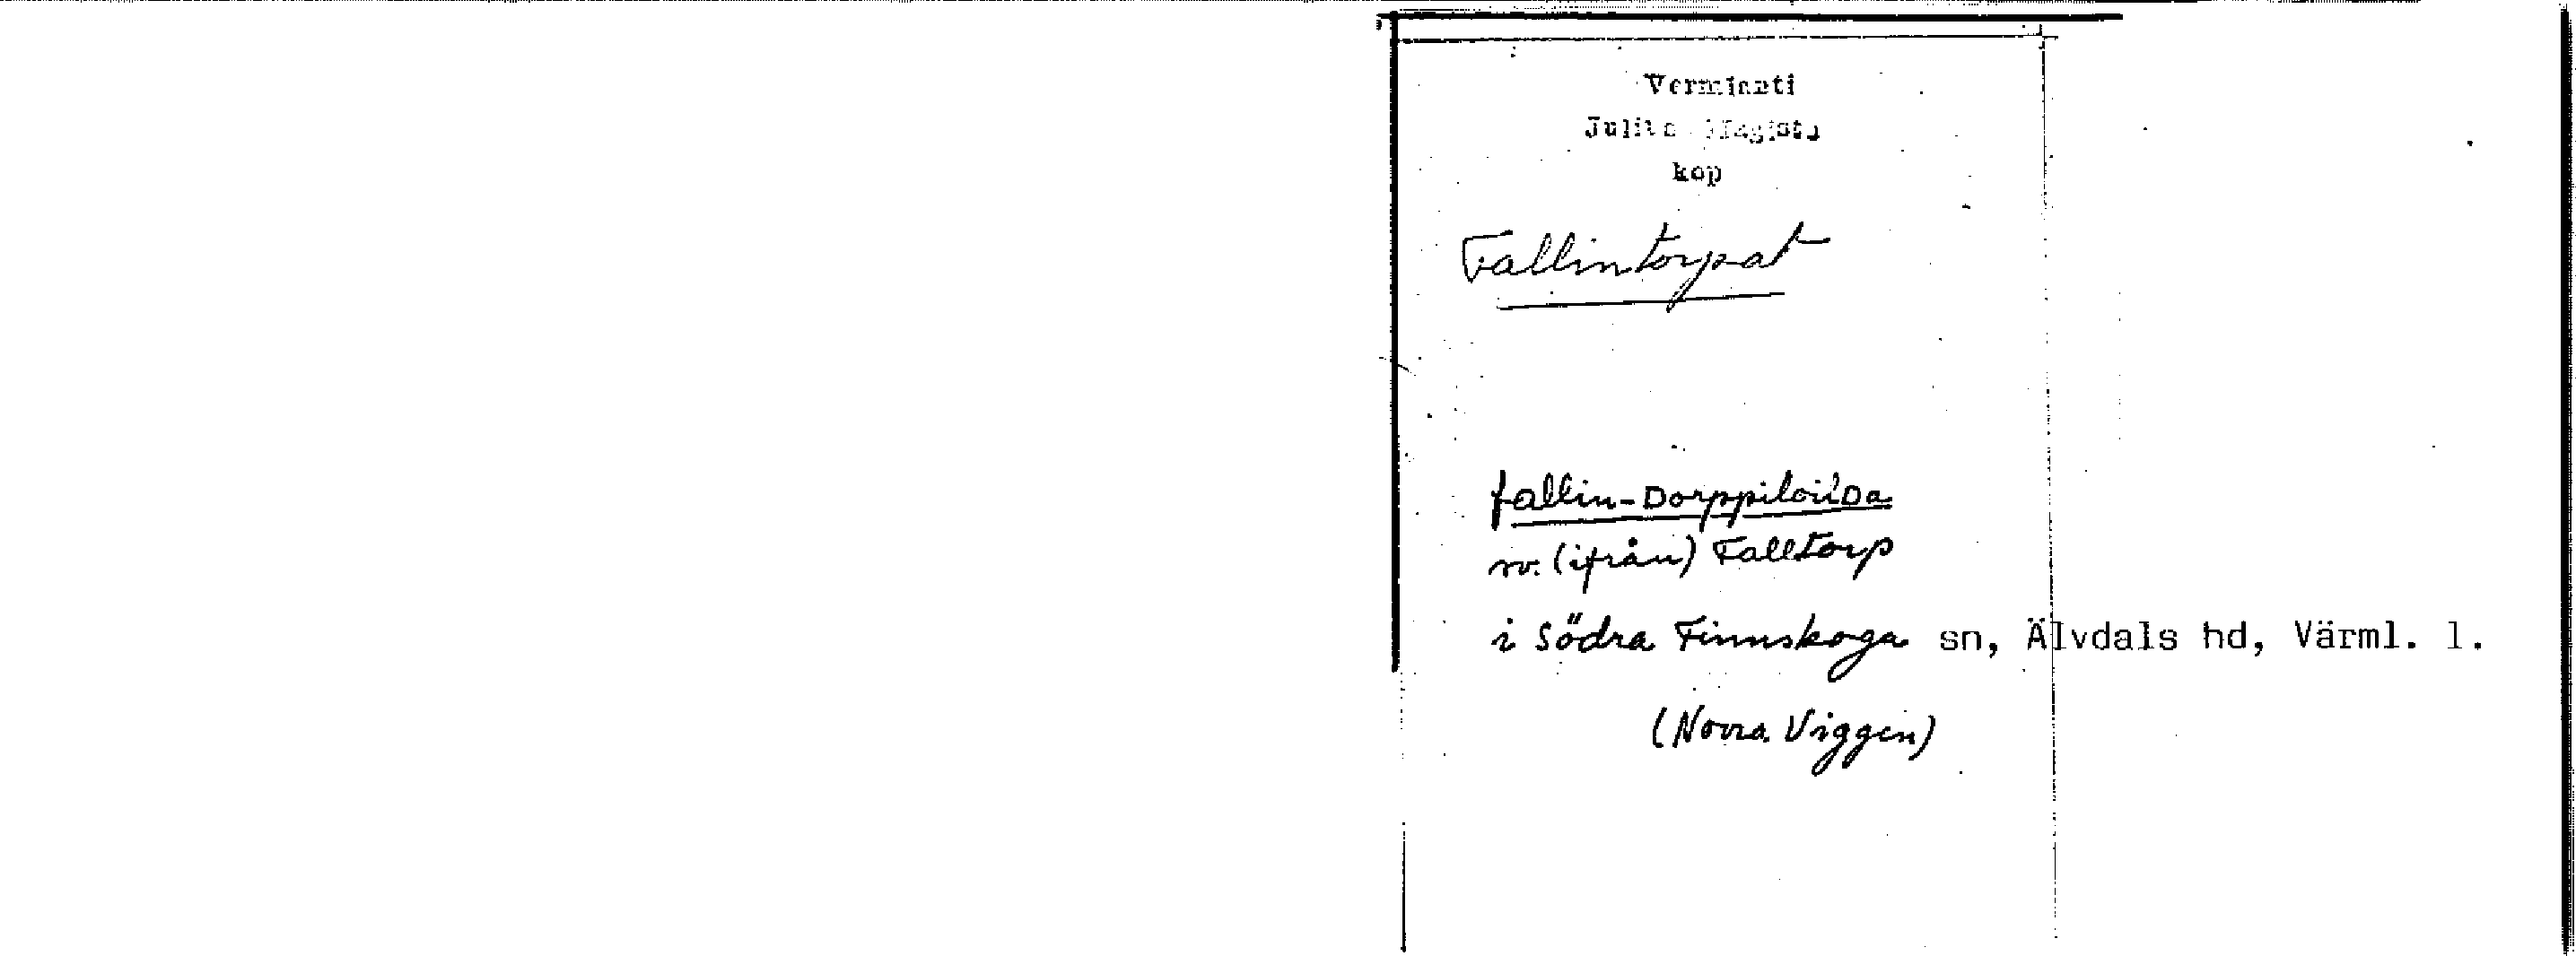 Vermlanti
Julius Mägiste
kop
Fallintorpat
fallin-Dorppiloilda
rv. (ifrån) Falltorp
i Södra Finnskoga sn, Älvdals hd, Värml. l.
(Norra Viggen)